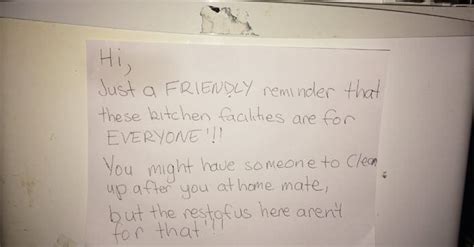 Hi,
Just a FRIENDLY reminder that
these kitchen facilities are for
EVERYONE'!!
You might have someone to Clean
up after you at home mate,
but the rest of us here aren't
for that'!!